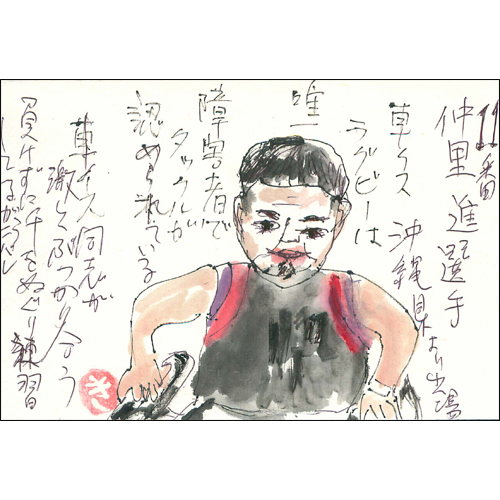 11番
仲里 進選手
沖縄県より出場
車イス
ラグビーは
唯一
障害者で
タックルが
認められている
車イス同志が
激しくぶつかり合う
負けずに
練習